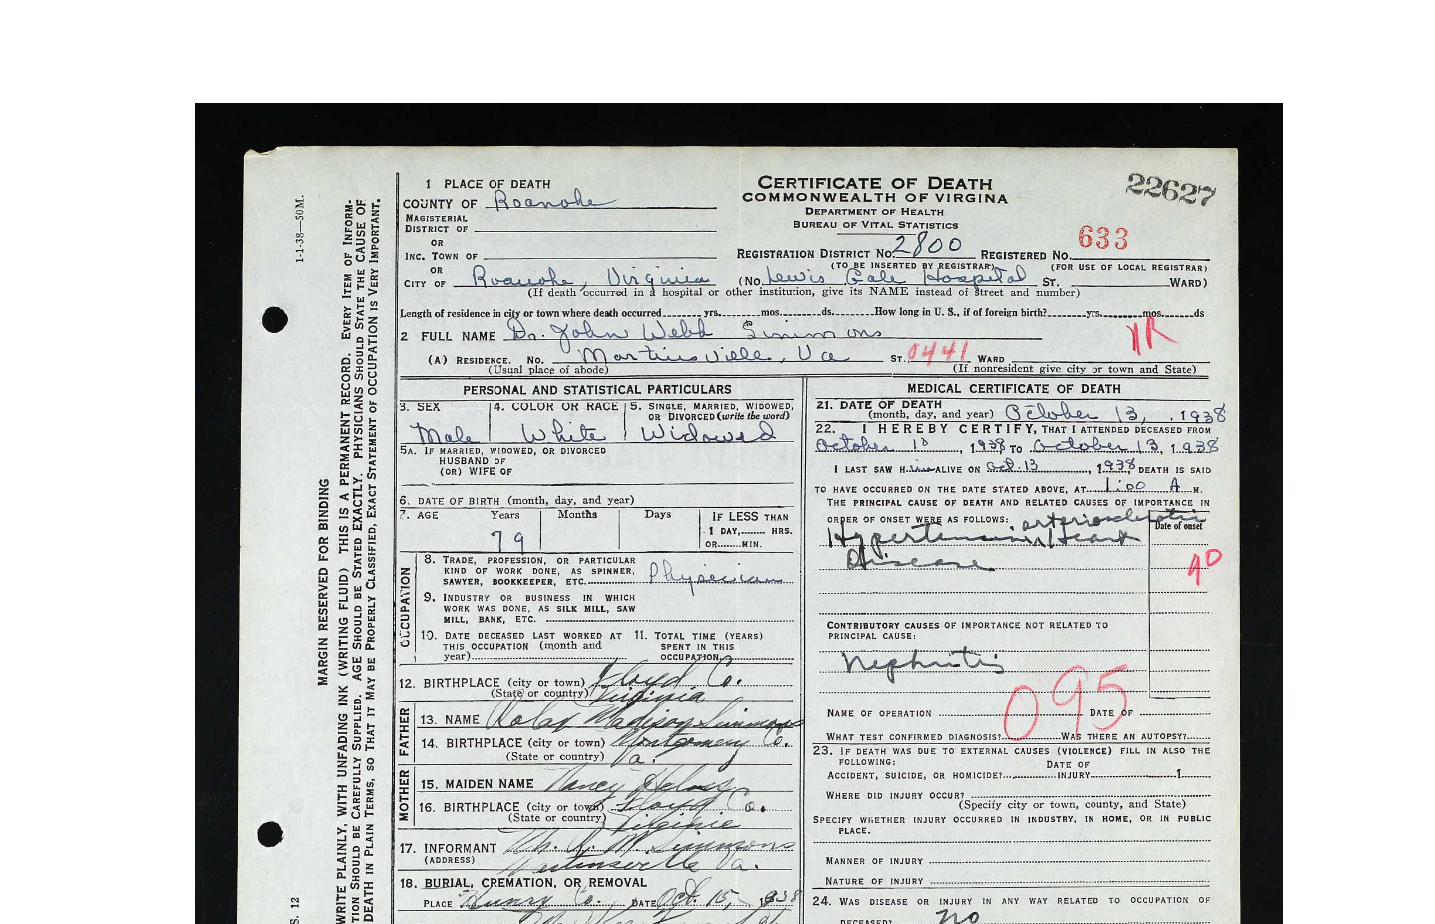 22627
1 PLACE OF DEATH
CERTIFICATE OF DEATH
COMMONWEALTH OF VIRGINIA
DEPARTMENT OF HEALTH
BUREAU OF VITAL STATISTICS
COUNTY OF Roanoke
MAGISTERIAL
DISTRICT OF
OR
INC. TOWN OF
REGISTRATION DISTRICT NO. 2800 REGISTERED NO. 633
(TO BE INSERTED BY REGISTRAR) (FOR USE OF LOCAL REGISTRAR)
OR
CITY OF Roanoke, Virginia (No. Lewis Gale Hospital ST. WARD)
(If death occurred in a hospital or other institution, give its NAME instead of street and number)
Length of residence in city or town where death occurred yrs. mos. ds. How long in U. S., if of foreign birth? yrs. mos. ds
2 FULL NAME Dr. John Webb Simmons
(A) RESIDENCE. No. Martinsville, Va ST. 0441 WARD
(Usual place of abode) (If nonresident give city or town and State)
PERSONAL AND STATISTICAL PARTICULARS
3. SEX 4. COLOR OR RACE 5. SINGLE, MARRIED, WIDOWED,
OR DIVORCED (write the word)
Male White Widowed
5A. IF MARRIED, WIDOWED, OR DIVORCED
HUSBAND OF
(OR) WIFE OF
6. DATE OF BIRTH (month, day, and year)
7. AGE Years Months Days IF LESS THAN
1 DAY, HRS.
OR MIN.
79
OCCUPATION
8. TRADE, PROFESSION, OR PARTICULAR
KIND OF WORK DONE, AS SPINNER,
SAWYER, BOOKKEEPER, ETC. Physician
9. INDUSTRY OR BUSINESS IN WHICH
WORK WAS DONE, AS SILK MILL, SAW
MILL, BANK, ETC.
10. DATE DECEASED LAST WORKED AT
THIS OCCUPATION (month and
year)
11. TOTAL TIME (YEARS)
SPENT IN THIS
OCCUPATION
12. BIRTHPLACE (city or town) Floyd Co.
(State or country) Virginia
FATHER
13. NAME Madison Simmons
14. BIRTHPLACE (city or town) Montgomery Co.
(State or country) Va.
MOTHER
15. MAIDEN NAME Nancy
16. BIRTHPLACE (city or town) Floyd Co.
(State or country) Virginia
17. INFORMANT M. Simmons
(ADDRESS) Martinsville Va.
18. BURIAL, CREMATION, OR REMOVAL
PLACE Henry Co. DATE Oct. 15, 1938
MEDICAL CERTIFICATE OF DEATH
21. DATE OF DEATH
(month, day, and year) October 13, 1938
22. I HEREBY CERTIFY, THAT I ATTENDED DECEASED FROM
October 10, 1938 TO October 13, 1938
I LAST SAW HIM ALIVE ON Oct. 13, 1938 DEATH IS SAID
TO HAVE OCCURRED ON THE DATE STATED ABOVE, AT 1:00 A M.
THE PRINCIPAL CAUSE OF DEATH AND RELATED CAUSES OF IMPORTANCE IN
ORDER OF ONSET WERE AS FOLLOWS: Date of onset
arteriosclerotic
Hypertension, Heart
Disease
CONTRIBUTORY CAUSES OF IMPORTANCE NOT RELATED TO
PRINCIPAL CAUSE:
Nephritis
095
NAME OF OPERATION DATE OF
WHAT TEST CONFIRMED DIAGNOSIS? WAS THERE AN AUTOPSY?
23. IF DEATH WAS DUE TO EXTERNAL CAUSES (VIOLENCE) FILL IN ALSO THE
FOLLOWING: DATE OF
ACCIDENT, SUICIDE, OR HOMICIDE? INJURY 1
WHERE DID INJURY OCCUR?
(Specify city or town, county, and State)
SPECIFY WHETHER INJURY OCCURRED IN INDUSTRY, IN HOME, OR IN PUBLIC
PLACE.
MANNER OF INJURY
NATURE OF INJURY
24. WAS DISEASE OR INJURY IN ANY WAY RELATED TO OCCUPATION OF
DECEASED? no
1-1-38—50M.
MARGIN RESERVED FOR BINDING
WRITE PLAINLY, WITH UNFADING INK (WRITING FLUID) THIS IS A PERMANENT RECORD. EVERY ITEM OF INFORM-
TION SHOULD BE CAREFULLY SUPPLIED. AGE SHOULD BE STATED EXACTLY. PHYSICIANS SHOULD STATE THE CAUSE OF
DEATH IN PLAIN TERMS, SO THAT IT MAY BE PROPERLY CLASSIFIED, EXACT STATEMENT OF OCCUPATION IS VERY IMPORTANT.
S. 12